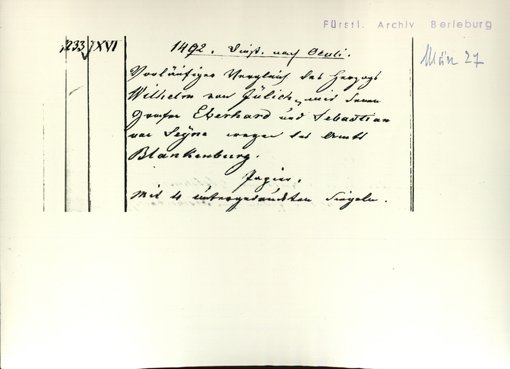 Fürstl. Archiv Berleburg
März 27
233 XVI 1492. Dinst. nach Oculi.
Vorläufiger Vergleich des Herzogs
Wilhelm von Jülich mit den
Grafen Eberhard und Sebastian
von Seyne wegen des Amts
Blankenburg.
Papier.
Mit 4 untergedruckten Siegeln.